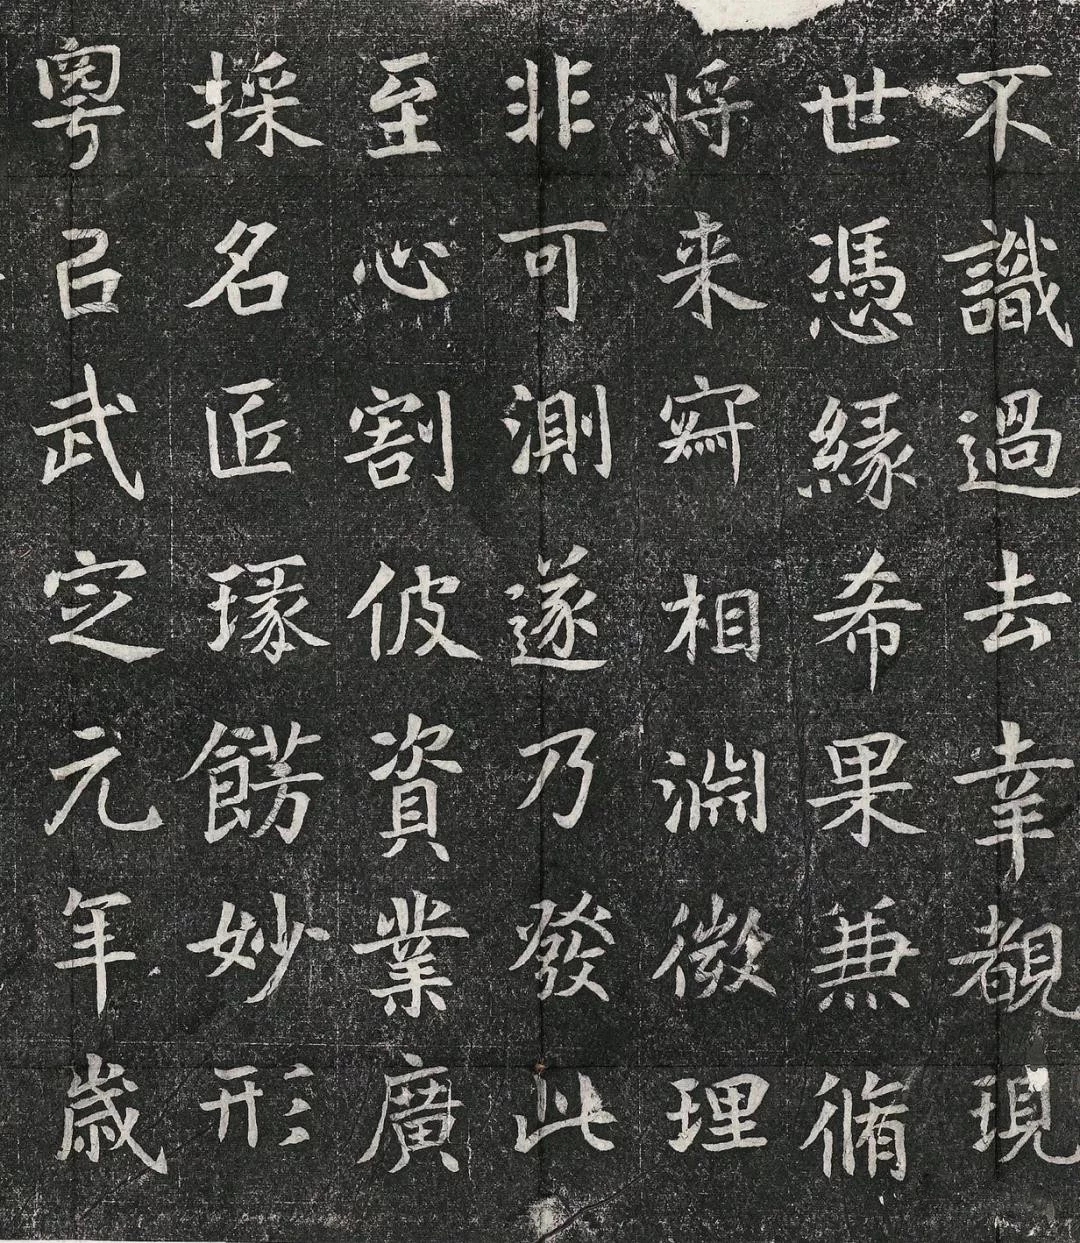 不識過去幸覩現
世憑緣希果兼脩
将来相渊微理
非可測遂乃發此
至心割彼資業廣
採名匠瑑餝妙形
粤㠯武定元年歲